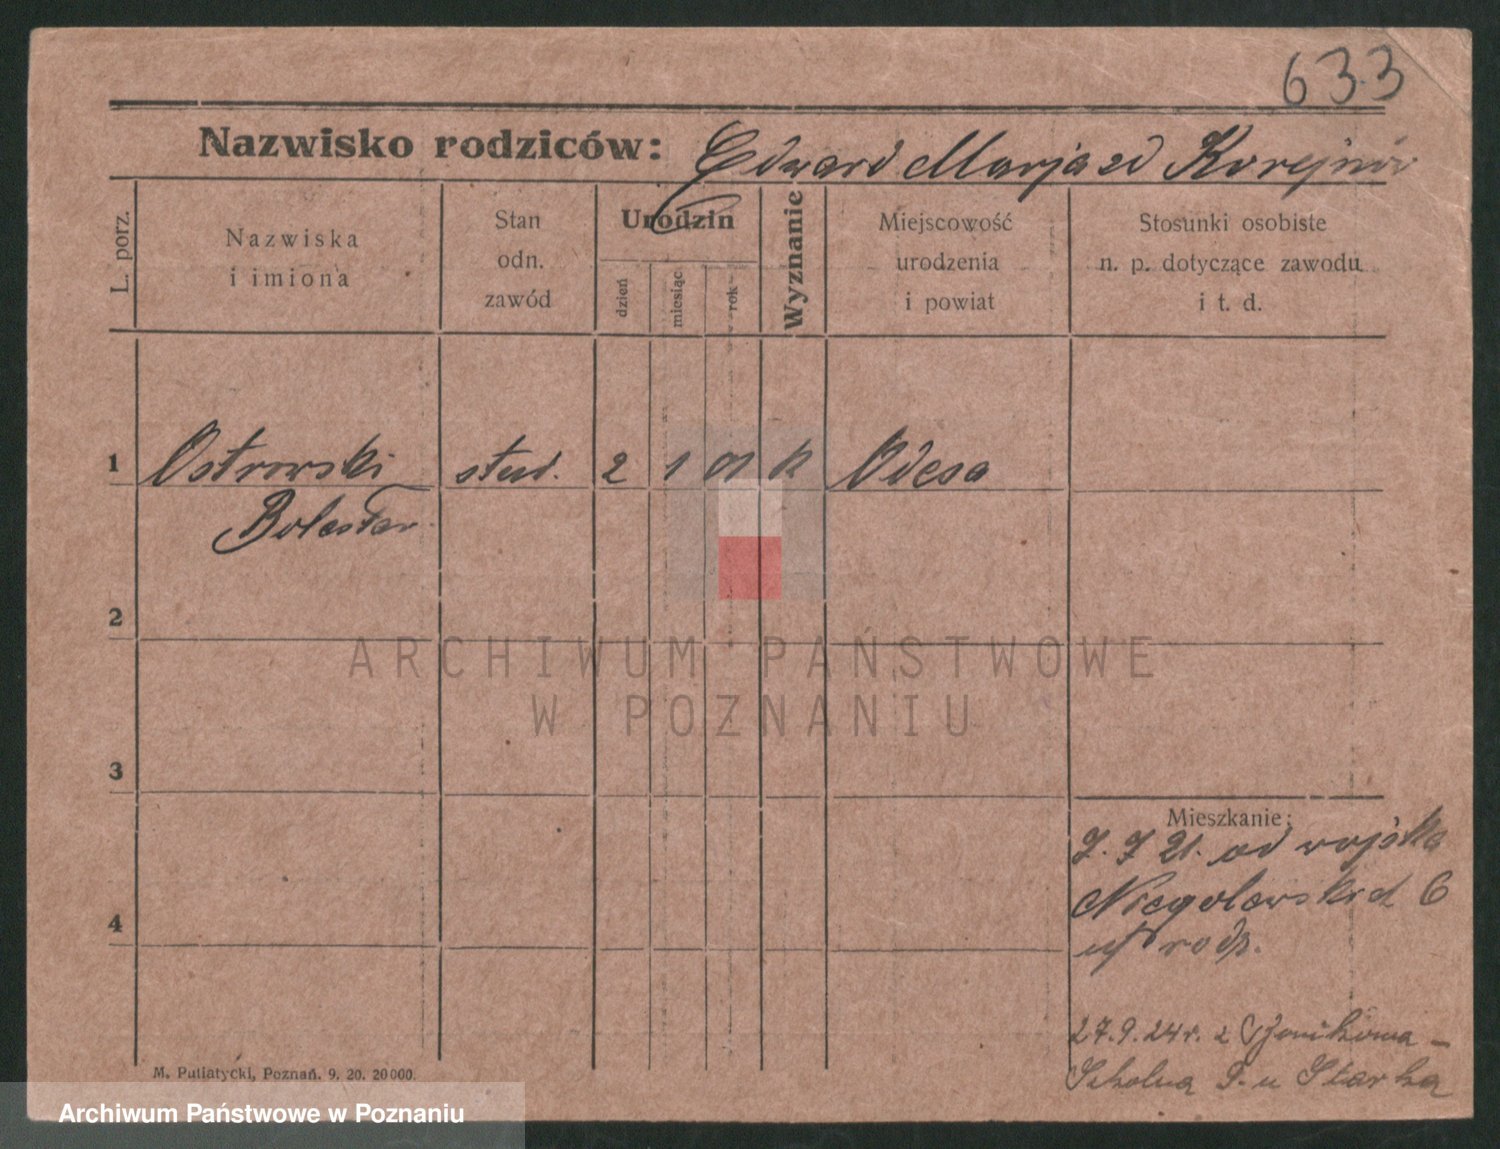 633
Nazwisko rodziców: Edward Marja zd
L. porz.
Nazwiska
i imiona
Stan
odn.
zawód
Urodzin
dzień
miesiąc
rok
Wyznanie
Miejscowość
urodzenia
i powiat
Stosunki osobiste
n. p. dotyczące zawodu
i t. d.
1 Ostrowski stud. 2 1 01 k Odesa
Bolesław
2
ARCHIWUM PAŃSTWOWE
W POZNANIU
3
Mieszkanie:
7. 7 21. od wojska
Niegolewskich 6
rodz.
4
27.9.24r. z Junikowa -
Szkolna u Starka
M. Putiatycki, Poznań. 9. 20. 20000.
Archiwum Państwowe w Poznaniu